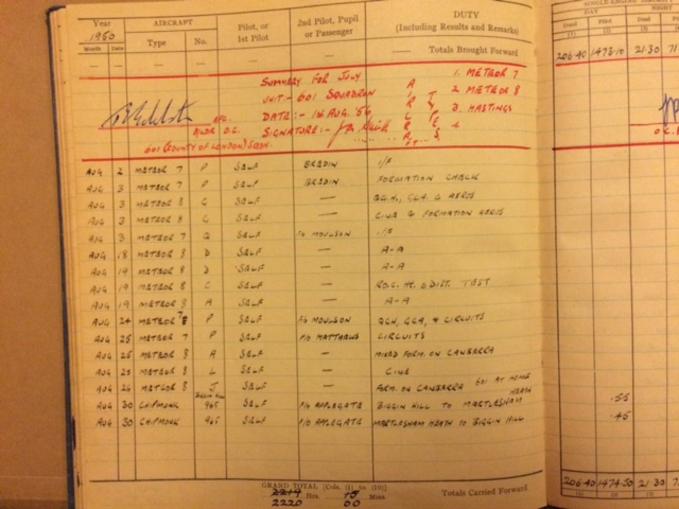 SINGLE-ENGINE AIRCRAFT
Year 1950 AIRCRAFT Pilot, or 1st Pilot 2nd Pilot, Pupil or Passenger DUTY (Including Results and Remarks) DAY NIGHT
Month Date Type No. Dual Pilot Dual
(1) (2) (3)
— — — — — — — Totals Brought Forward 206.40 1473.10 21.30 71
SUMMARY FOR JULY 1. METEOR 7
UNIT:- 601 SQUADRON 2. METEOR 8
DATE:- 1st AUG. 3. HASTINGS
SIGNATURE:- 4
AIRCRAFT TYPES
O.C.
601 (COUNTY OF LONDON) SQDN.
AUG 2 METEOR 7 P SELF BREDIN I/F
AUG 3 METEOR 7 P SELF BREDIN FORMATION CHECK
AUG 3 METEOR 8 C SELF — Q.G.H., G.C.A. & AEROS
AUG 3 METEOR 8 C SELF — CINE & FORMATION AEROS
AUG 3 METEOR 7 Q SELF F/O MOULSON I/F
AUG 18 METEOR 8 D SELF — A-A
AUG 19 METEOR 8 D SELF — A-A
AUG 19 METEOR 8 C SELF — TEST
AUG 19 METEOR 8 A SELF — A-A
AUG 24 METEOR P SELF F/O MOULSON QGH, GCA, & CIRCUITS
AUG 25 METEOR 7 P SELF P/O MATTHEWS CIRCUITS
AUG 25 METEOR 8 A SELF — MIXED FORM. ON CANBERRA
AUG 25 METEOR 8 L SELF — CINE
AUG 26 METEOR 8 J SELF — FORM. ON CANBERRA 601 AT HOME
AUG 30 CHIPMUNK 965 SELF P/O APPLEGATE BIGGIN HILL TO MARTLESHAM HEATH .55
AUG 30 CHIPMUNK 965 SELF P/O APPLEGATE MARTLESHAM HEATH TO BIGGIN HILL .45
GRAND TOTAL [Cols. (1) to (10)]
2219 Hrs. 15 Mins. Totals Carried Forward 206.40 1474.50 21.30
2220 00